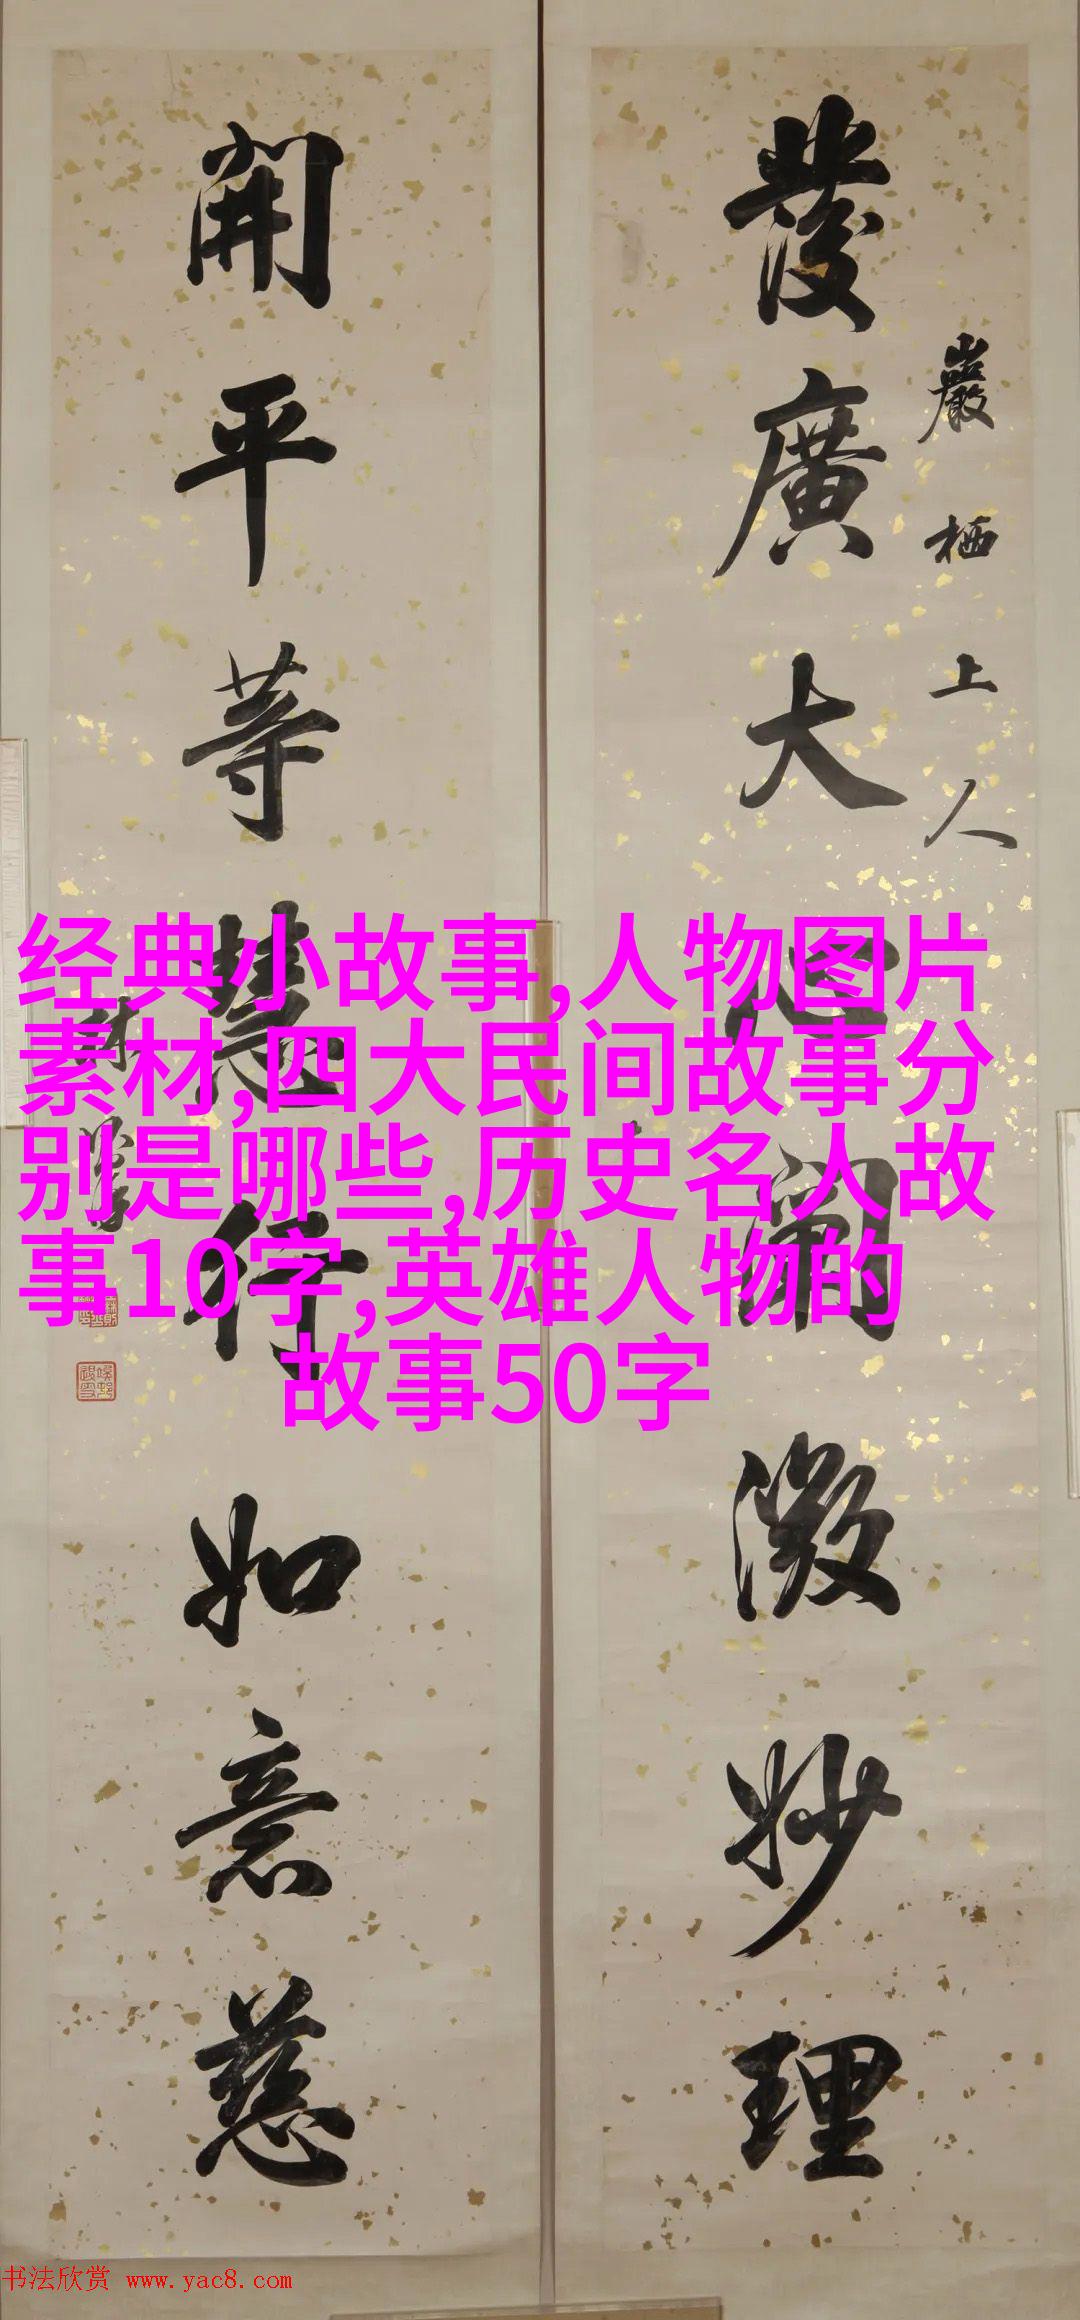 發廣大心闡微妙理
巖栖上人
開平等慧行如意慈
林
经典小故事,人物图片
素材,四大民间故事分
别是哪些,历史名人故
事10字,英雄人物的
故事50字
书法欣赏 www.yac8.com